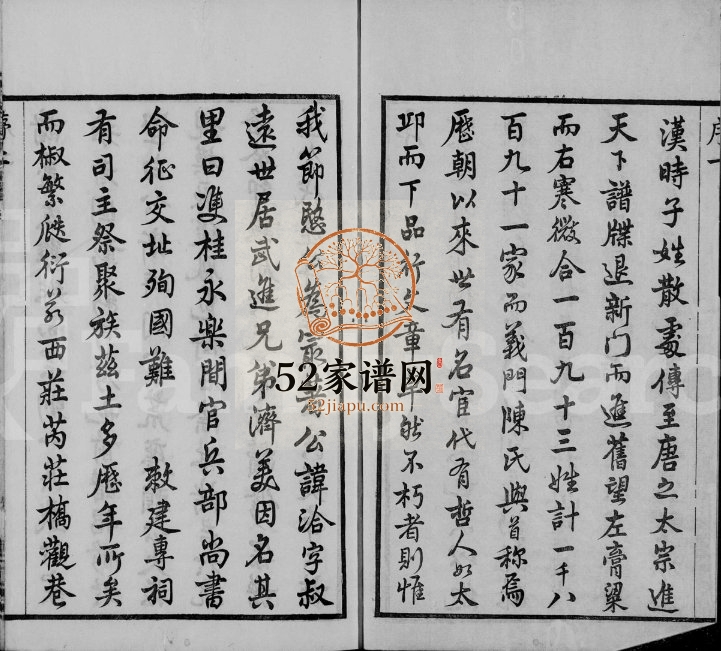 序一
漢時子姓散處傳至唐之太宗進
天下譜牒退新门而進舊望左膏粱
而右寒微合一百九十三姓計一千八
百九十一家而義門陳氏與首稱焉
歷朝以来世有名宦代有哲人如太
邱而下品行文章卓然不朽者則惟
我節愍公爲最公諱洽字叔
遠世居武進兄弟濟美因名其
里曰雙桂永樂間官兵部尚書
命征交址殉國難 敕建專祠
有司主祭聚族茲土多歷年所矣
而椒繁瓞衍若西莊芮莊橋觀巷
52家谱网
52jiapu.com